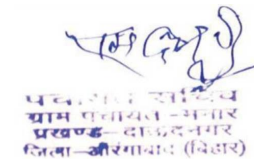 पंचायत सचिव
ग्राम पंचायत - मनार
प्रखण्ड - दाऊदनगर
जिला - औरंगाबाद (बिहार)